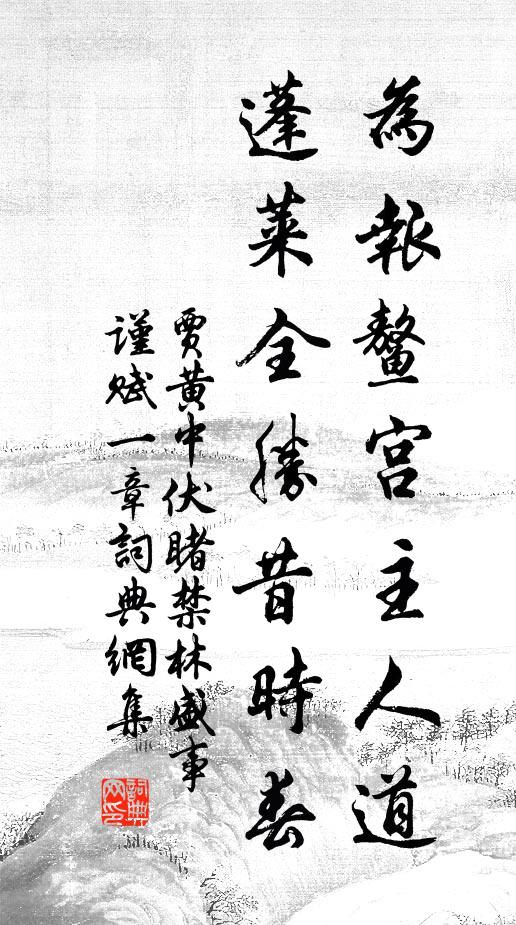 為報鼇宮主人道
蓬萊全勝昔時春
賈黃中伏睹禁林盛事
謹賦一章詞典網集
詞典網印